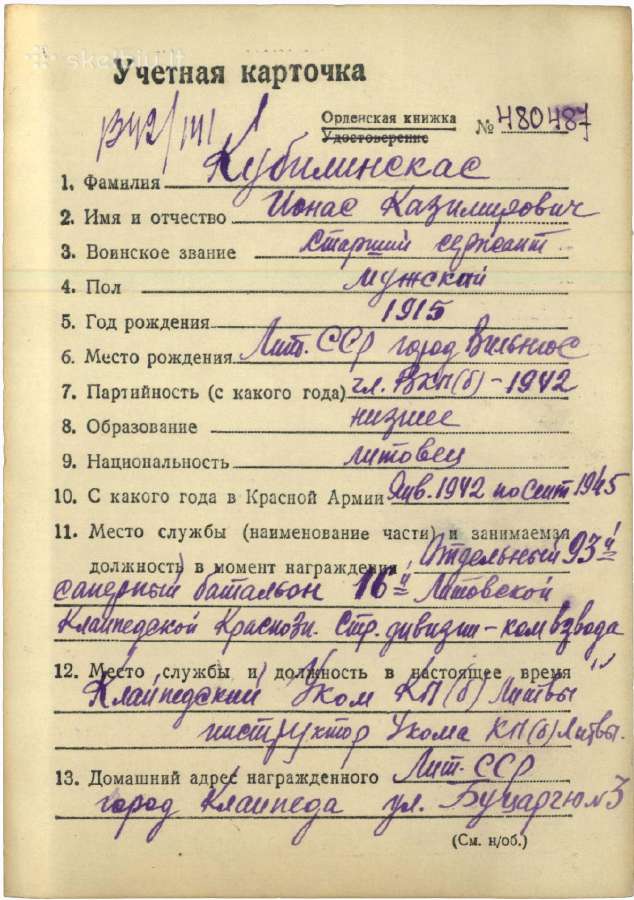 skelbiu.lt
Учетная карточка
1342/141
Орденская книжка
Удостоверение № 480487
1. Фамилия Кубилинскас
2. Имя и отчество Ионас Казимирович
3. Воинское звание Старший сержант
4. Пол Мужской
5. Год рождения 1915
6. Место рождения Лит. ССР город Вильнюс
7. Партийность (с какого года) чл. ВКП(б) - 1942
8. Образование низшее
9. Национальность литовец
10. С какого года в Красной Армии Янв. 1942 по Сент 1945
11. Место службы (наименование части) и занимаемая
должность в момент награждения Отдельный 93й
саперный батальон 16й Литовской
Клайпедской Красноз. Стр. дивизии - ком взвода
12. Место службы и должность в настоящее время
Клайпедский Уком КП(б) Литвы
инструктор Укома КП(б) Литвы.
13. Домашний адрес награжденного Лит. ССР
город Клаипеда ул. №3
(См. н/об.)